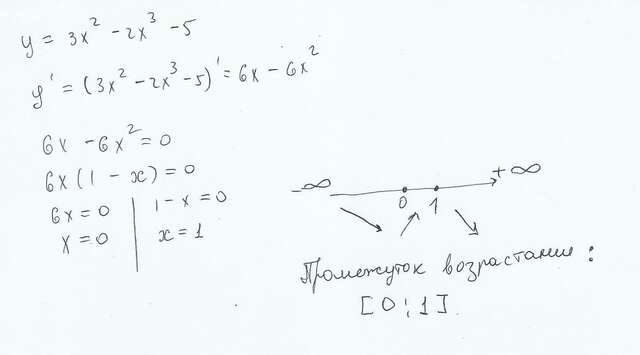 y = 3x² - 2x³ - 5
y' = (3x² - 2x³ - 5)' = 6x - 6x²
6x - 6x² = 0
6x(1 - x) = 0
6x = 0 | 1 - x = 0
x = 0 | x = 1
-∞ 0 1 +∞
Промежуток возрастание:
[0; 1]